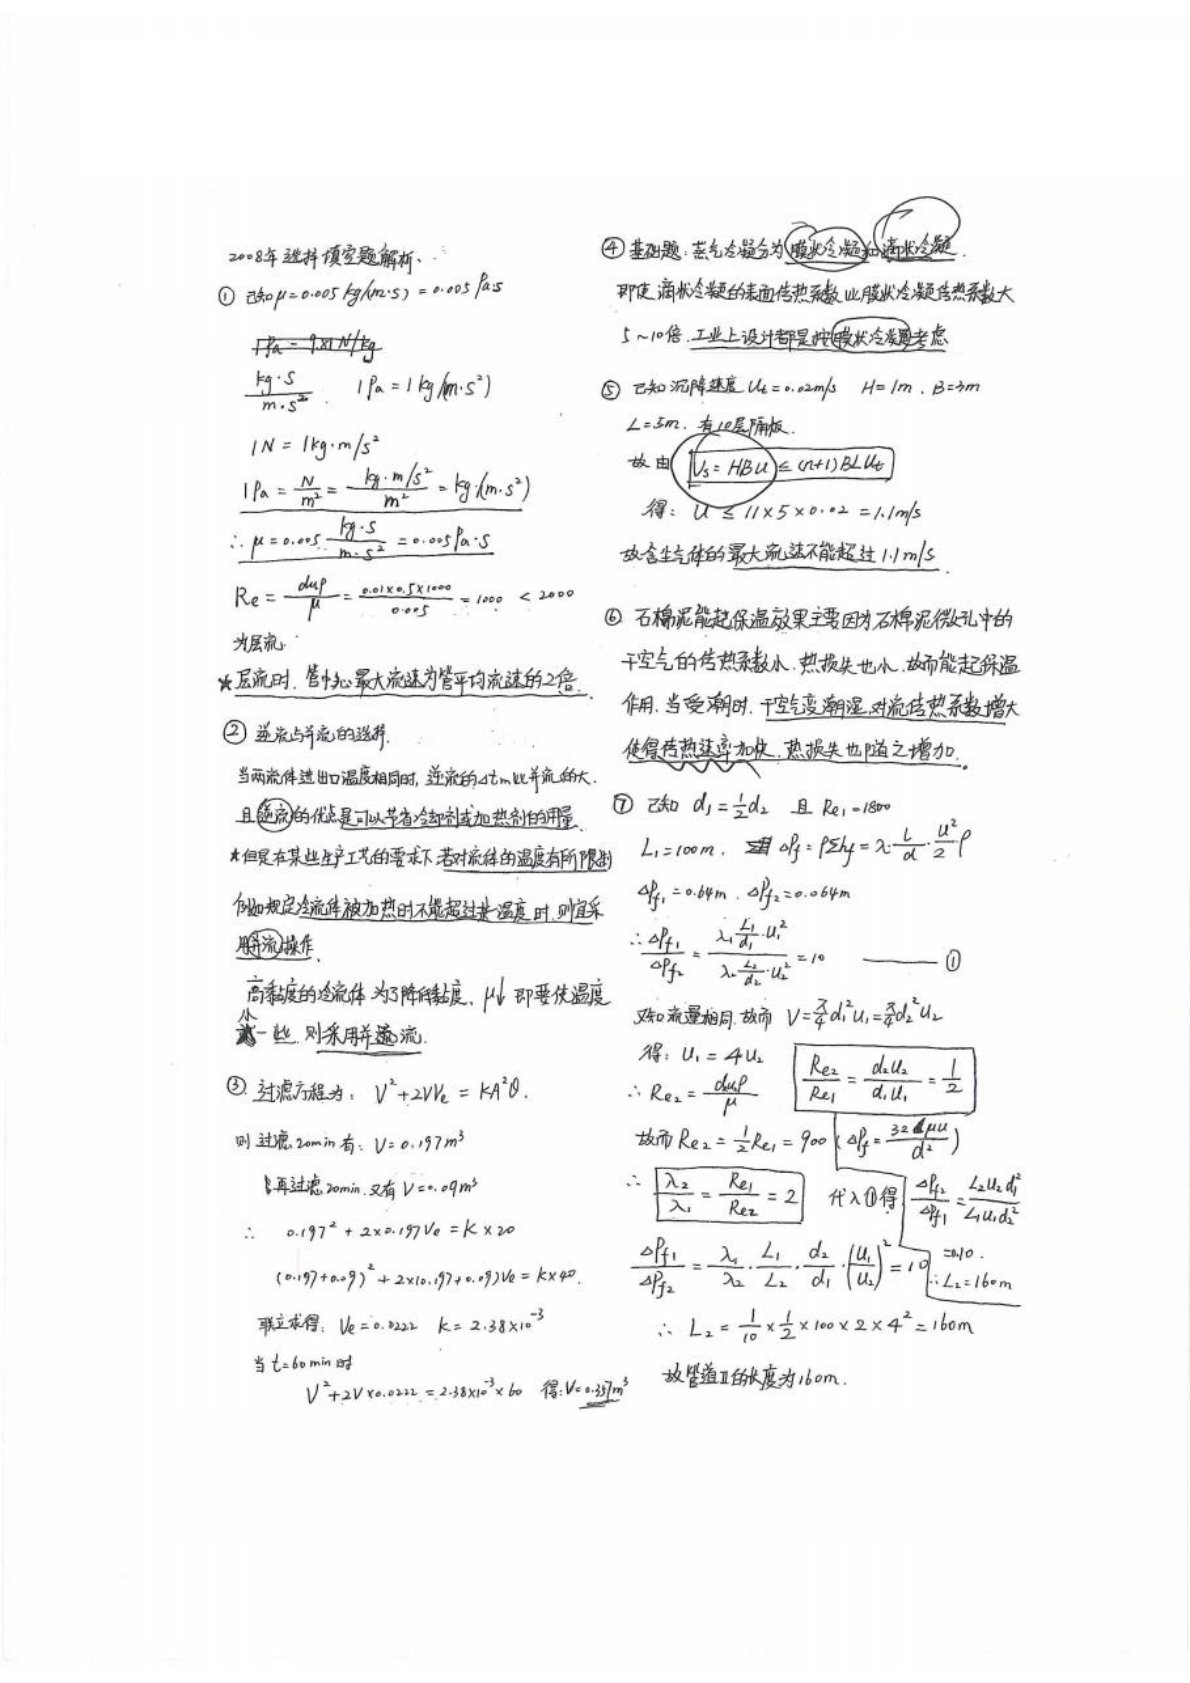 2008年选择填空题解析、
① 已知μ=0.005 kg/(m·s) = 0.005 Pa·s
1Pa = 9.81 N/kg
kg·s / m·s² 1Pa = 1kg/(m·s²)
1N = 1kg·m/s²
1Pa = N/m² = (kg·m/s²)/m² = kg/(m·s²)
∴ μ = 0.005 kg·s/(m·s²) = 0.005 Pa·s
Re = duρ/μ = (0.01×0.5×1000)/0.005 = 1000 < 2000
为层流.
★层流时、管中心最大流速为管平均流速的2倍.
② 逆流与并流的选择.
当两流体进出口温度相同时, 逆流的Δtm比并流的大.
且逆流的优点是可以节省冷却剂或加热剂的用量.
★但是在某些生产工艺的要求下若对流体的温度有所限制
例如规定冷流体被加热时不能超过某温度时,则宜采
用并流操作.
高黏度的冷流体 为了降低黏度、μ↓ 即要使温度
小一些. 则采用并流.
③ 过滤方程为: V²+2VVe = KA²θ.
则过滤20min有: V=0.197m³
再过滤20min.又有V=0.09m³
∴ 0.197² + 2×0.197Ve = K×20
(0.197+0.09)² + 2×(0.197+0.09)Ve = K×40.
联立求得: Ve=0.0222 K= 2.38×10⁻³
当t=60min时
V²+2V×0.0222 = 2.38×10⁻³×60 得:V=0.357m³
④ 基础题:蒸气冷凝分为膜状冷凝和滴状冷凝.
即使滴状冷凝的表面传热系数比膜状冷凝传热系数大
5~10倍.工业上设计都是按膜状冷凝考虑
⑤ 已知沉降速度Ut=0.02m/s H=1m. B=3m
L=5m. 有10层隔板.
故由 Vs = HBu ≤ (n+1)BLUt
得: U ≤ 11×5×0.02 = 1.1m/s
故含尘气体的最大流速不能超过1.1m/s.
⑥ 石棉泥能起保温效果主要因为石棉泥微孔中的
干空气的传热系数小.热损失也小.故而能起保温
作用.当受潮时.干空气变潮湿.对流传热系数增大
使得传热速率加快.热损失也随之增加.
⑦ 已知 d₁=½d₂ 且 Re₁=1800
L₁=100m. Δpf = ρΣhf = λ·L/d·u²/2 ρ
Δpf₁=0.64m. Δpf₂=0.064m
∴ Δpf₁/Δpf₂ = (λ₁ L₁/d₁·u₁²)/(λ₂ L₂/d₂·u₂²) = 10 —— ①
又知流量相同.故而 V=π/4 d₁²u₁=π/4 d₂²u₂
得: u₁ = 4u₂
∴ Re₂ = duρ/μ Re₂/Re₁ = d₂u₂/d₁u₁ = 1/2
故而Re₂ = ½Re₁ = 900 (Δpf = 32μu/d²)
∴ λ₂/λ₁ = Re₁/Re₂ = 2 代入①得 Δpf₂/Δpf₁ = L₂u₂d₁²/L₁u₁d₂²
Δpf₁/Δpf₂ = λ₁/λ₂·L₁/L₂·d₂/d₁·(u₁/u₂)² = 10 =0.10.
∴L₂=160m
∴ L₂ = 1/10×1/2×100×2×4² = 160m
故管道Ⅱ的长度为160m.